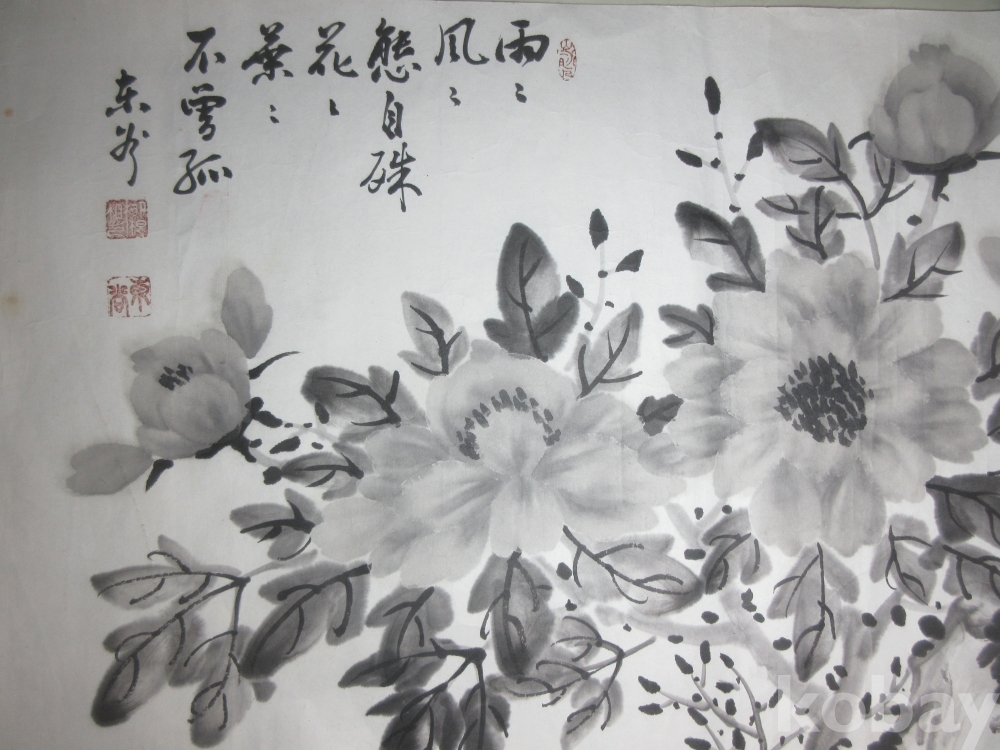 雨〻
風〻
態自殊
花〻
葉〻
不曾孤
东谷
kobay